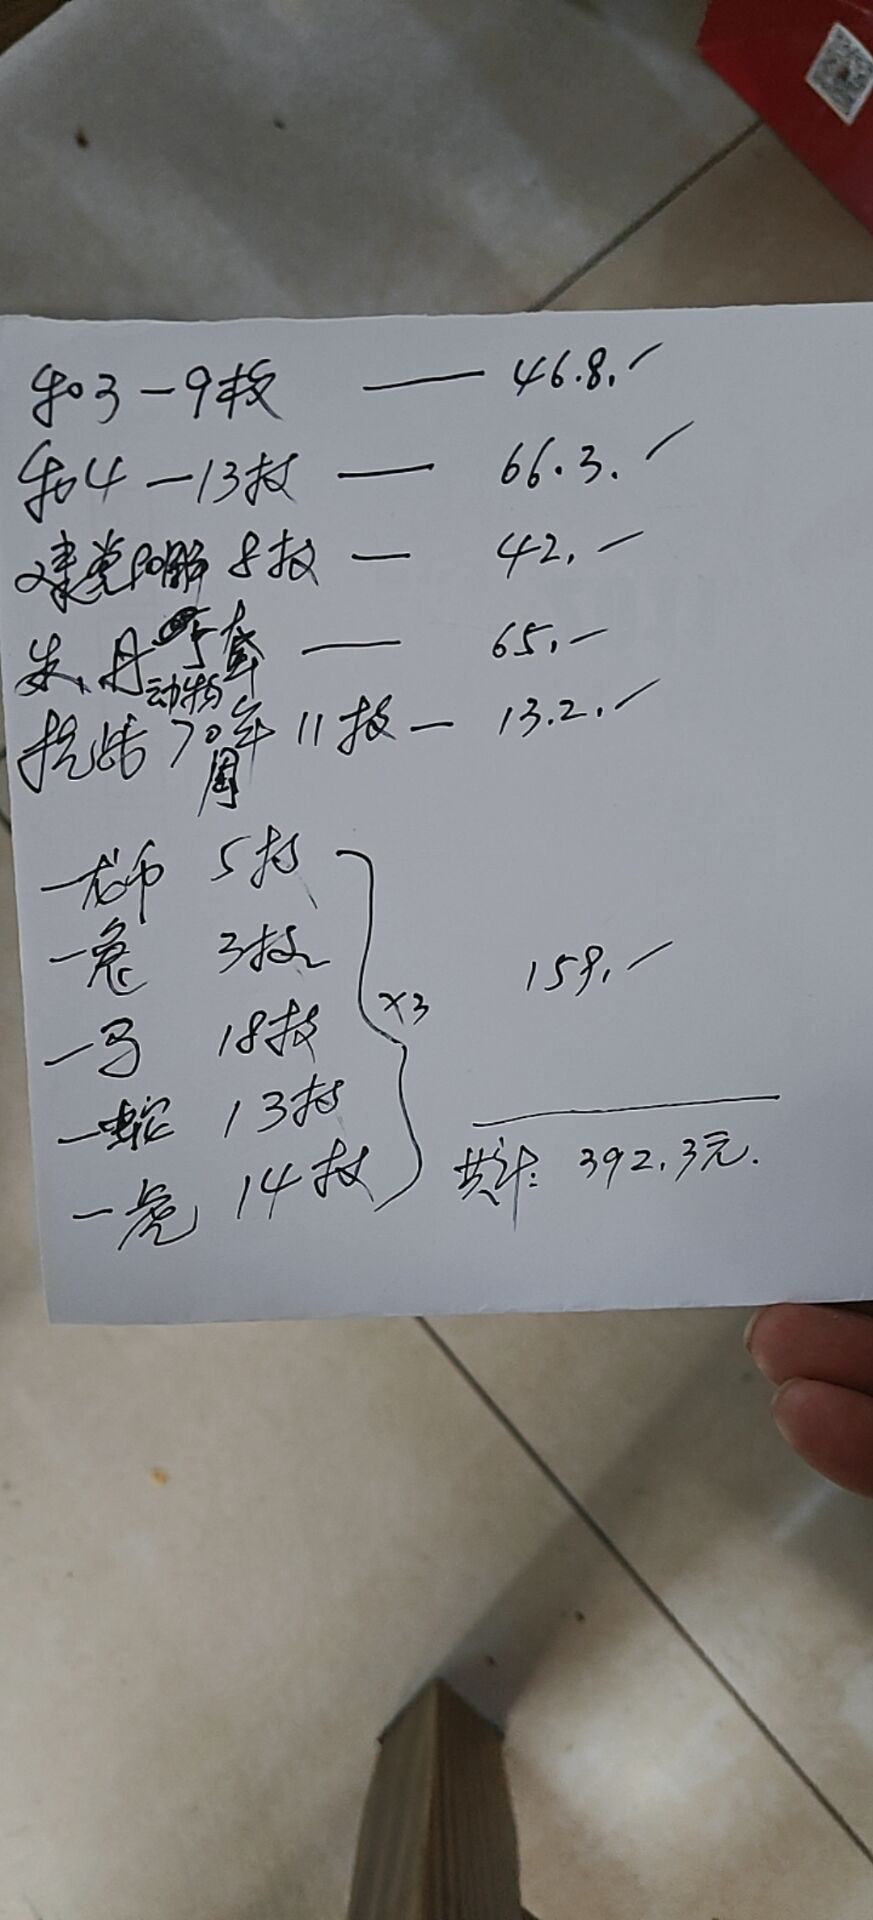 和3一9枚 —— 46.8.✓
和4一13枚 —— 66.3.✓
建党 8枚 — 42.✓
朱、丹 套 —— 65.✓
动物
70年 11枚 — 13.2.✓
周
一龙币 5枚
一兔 3枚
一马 18枚
一蛇 13枚
一虎 14枚
×3
159.✓
共计: 392.3元.